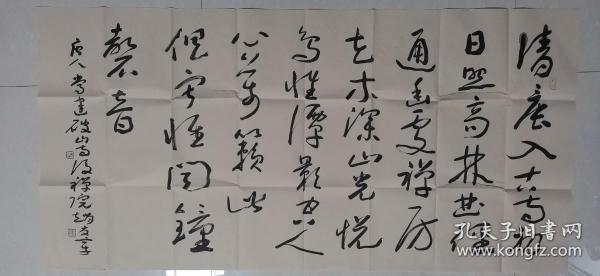 清晨入古寺初
日照高林曲径
通幽處禅房
花木深山光悦
鳥性潭影空人
心万籁此
俱寂惟闻鐘
磬音
唐人常建破山寺後禅院
孔夫子旧书网